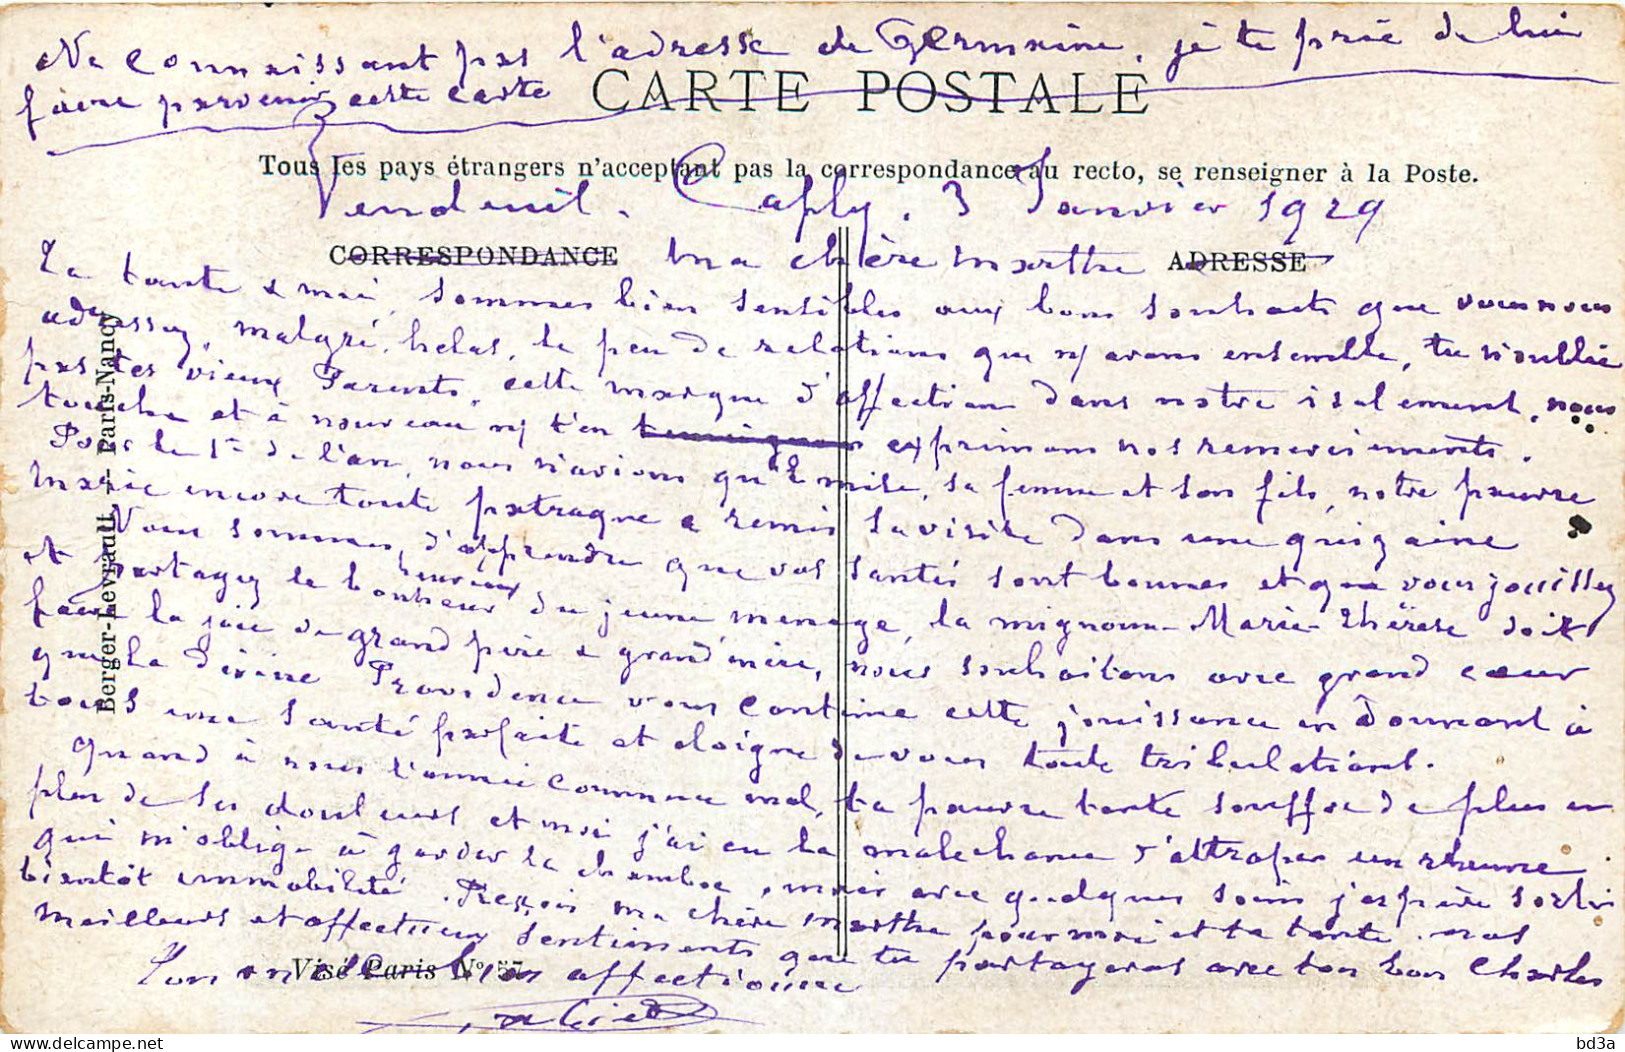 Ne connaissant pas l'adresse de Germaine, je te prie de lui
faire parvenir cette carte
CARTE POSTALE
Tous les pays étrangers n'acceptent pas la correspondance au recto, se renseigner à la Poste.
Vendeuil. Caply. 3 Janvier 1929
CORRESPONDANCE
Ma chère Marthe
ADRESSE
Ta tante & moi, sommes bien sensibles aux bons souhaits que vous nous
adressez, malgré, helas, le peu de relations que ny avons ensemble, tu n'oublie
pas tes vieux Parents, cette marque d'affection dans notre isolement, nous
touche et à nouveau ny t'en exprimons nos remerciements.
Pour le 1er de l'an, nous n'avions qu'Emile, sa femme et son fils, notre pauvre
Marie encore toute patraque a remis sa visite dans une quinzaine
Nous sommes heureux d'apprendre que vos santés sont bonnes et que vous jouissez
et partagez le bonheur du jeune menage, la mignonne Marie-Thérèse doit
faire la joie de grand père & grand'mère, nous souhaitons avec grand cœur
que la Divine Providence vous continue cette jouissance en donnant à
tous une santé parfaite et éloigne de vous toute tribulations.
Quand à nous l'année commence mal, ta pauvre tante souffre de plus en
plus de ses douleurs et moi j'ai eu la malechance d'attraper un rhume
qui m'oblige à garder la chambre, mais avec quelques soins j'espère sortir
bientôt immobilité. Reçois ma chère Marthe pour moi et ta tante nos
meilleurs et affectueux sentiments que tu partageras avec ton bon Charles
Ton oncle bien affectionné
Visé Paris N° 57
Berger-Levrault — Paris-Nancy
delcampe.net
bd3a